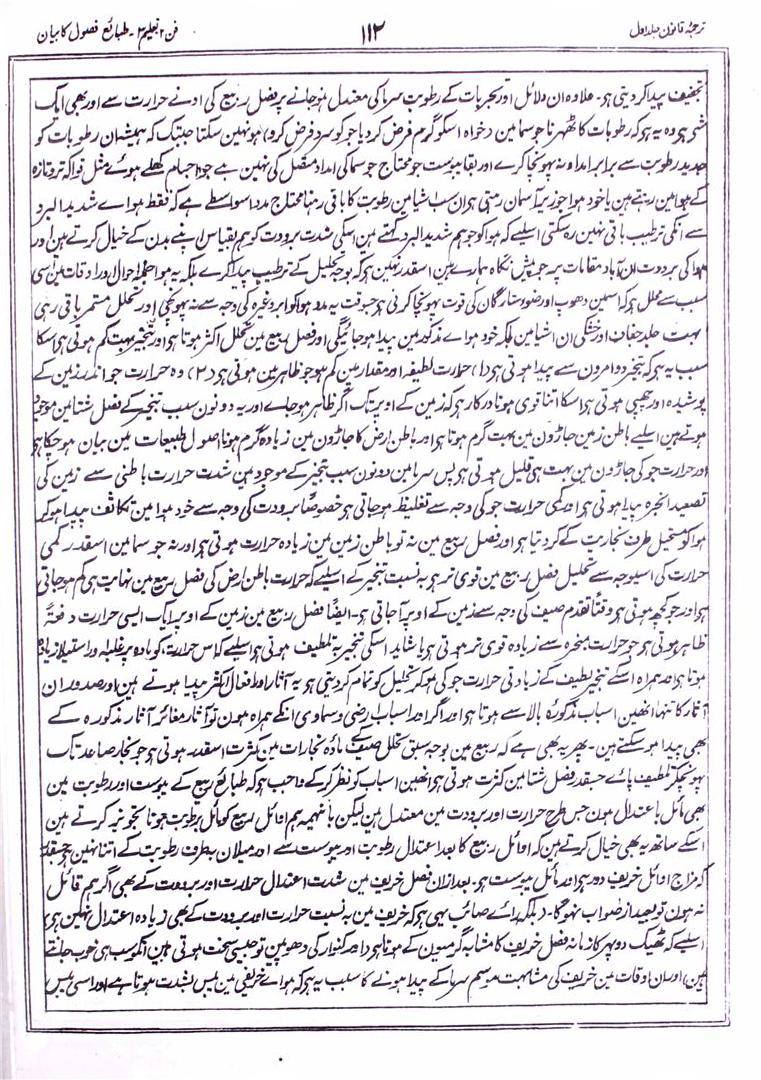 ترجمۂ قانون جلد اول
۱۱۲
فن ۲ تعلیم ۲۔ طبائع فصول کا بیان
تجفیف پیدا کر دیتی ہو۔ علاوہ ان دلائل اور تجربات کے رطوبت سرما کی معتدل ہوجانے پر فصل ربیع کی ادنے حرارت سے اور بھی ایک
شے ہو وہ یہ ہو کہ رطوبات کا ٹھہرنا جو سما مین دخواہ اسکو گرم فرض کر دیا جو کو سرد فرض کرو) ہو نہین سکتا جبتک کہ ہمیشہ ان رطوبات کو
جدید رطوبت سے برابر امداد نہ پہونچا کرے اور بقا یبوست جو محتاج جو سما کی امداد متصل کی نہین ہے جو اجسام کھلے ہوئے مثل فواکہ تروتازہ
کے ہوا مین رہتے ہین یا خود ہوا جو زیر آسمان رہتی ہو ان سب اشیا مین رطوبت کا باقی رہنا محتاج مدد اسواسطے ہے کہ فقط ہواے شدید البرد
سے انکی ترطیب باقی نہین رہ سکتی اسلیے کہ ہوا کو جو ہم شدید البرد کہتے ہین اسکی شدت برودت کو ہم بقیاس اپنے بدن کے خیال کرتے ہین اور
ہوا کی برودت ان آباد مقامات پر جو پیش نگاہ ہمارے ہین اسقدر نہین ہو کہ بوجہ تحلیل کے ترطیب پیدا کرے بلکہ یہ ہوا جملہ احوال اور اوقات مین اسی
سبب سے محلل ہو کہ اسمین دھوپ اور ضوء ستارگان کی قوت پہونچا کرتی ہو جسوقت یہ مدد ہوا کو ابر وغیرہ کی وجہ سے نہ پہونچی اور تحلل مستمر باقی رہی
بہت جلد جفاف اور خشکی ان اشیا مین بلکہ خود ہواے مذکور مین پیدا ہوجائیگی اور فصل ربیع مین تحلل اکثر ہوتا ہو اور تبخیر بہت کم ہوتی ہو اسکا
سبب یہ ہو کہ تبخیر دو امرون سے پیدا ہوتی ہو (۱) حرارت لطیفہ اور مقدار مین کم ہو جو ظاہر مین ہوتی ہو (۲) وہ حرارت جو اندر زمین کے
پوشیدہ اور چھپی ہوتی ہو اسکا اتنا قوی ہونا درکار ہو کہ زمین کے اوپر تک اگر ظاہر ہو جاے اور یہ دونون سبب تبخیر کے فصل شتا مین موجود
ہوتے ہین اسلیے باطن زمین جاڑون مین بہت گرم ہوتا ہو اور باطن ارض کا جاڑون مین زیادہ گرم ہونا اصول طبیعات مین بیان ہو چکا ہو
اور حرارت جو کی جاڑون مین بہت ہی قلیل ہوتی ہو پس سرما مین دونون سبب تبخیر کے موجود ہین شدت حرارت باطنی سے زمین کی
تصعید ابخرہ پیدا ہوتی ہو اور کمی حرارت جو کی وجہ سے تغلیظ ہوجاتی ہو خصوصاً برودت کی وجہ سے خود ہوا مین تکاثف پیدا ہو کر
ہوا کو مستحیل طرف بخاریت کے کر دیتا ہو اور فصل ربیع مین نہ تو باطن زمین مین زیادہ حرارت ہوتی ہو اور نہ جو سما مین اسقدر کمی
حرارت کی اسیوجہ سے تحلیل فصل ربیع مین قوی تر ہو بہ نسبت تبخیر کے اسلیے کہ حرارت باطن ارض کی فصل ربیع مین نہایت ہی کم ہوجاتی
ہو اور جو کچھ ہوتی ہو وقتاً تقدم صیف کی وجہ سے زمین کے اوپر آجاتی ہو۔ ایضاً فصل ربیع مین زمین کے اوپر ایک ایسی حرارت دفعۃً
ظاہر ہوتی ہو جو حرارت مبخرہ سے زیادہ قوی تر ہوتی ہو یا شاید اسکی تبخیر بہ تلطیف ہوتی ہو اسلیے کہ اس حرارت کو مادہ پر غلبہ اور استیلا زیادہ
ہوتا ہو اور ہمراہ اسکے تبخیر لطیف کے زیادتی حرارت جو کی ہو کر تحلیل کو تمام کر دیتی ہو یہ آثار اور افعال اکثر پیدا ہوتے ہین اور صدور ان
آثار کا تنہا انھین اسباب مذکورۂ بالا سے ہوتا ہو اور اگر اور اسباب ارضی و سماوی انکے ہمراہ ہون تو آثار مغائر آثار مذکورہ کے
بھی پیدا ہو سکتے ہین۔ پھر یہ بھی ہے کہ ربیع مین بوجہ سبق تحلل صیف مادہ بخارات مین کثرت اسقدر ہوتی ہو جو بخار صاعد تک
پہونچکر تلطیف پائے جسقدر فصل شتا مین کثرت ہوتی ہو انھین اسباب کو نظر کر کے واجب ہو کہ طبائع ربیع کے یبوست اور رطوبت مین
بھی مائل باعتدال ہون جس طرح حرارت اور برودت مین معتدل ہین لیکن باینہمہ ہم اوائل ربیع کو مائل برطوبت ہونا تجویز کرتے ہین
اسکے ساتھ یہ بھی خیال کرتے ہین کہ اوائل ربیع کا بعد اعتدال رطوبت اور یبوست سے اور میلان بطرف رطوبت کے اتنا نہین ہو جسقدر
کہ مزاج اوائل خریف دور ہو اور مائل یبوست ہو۔ بعد ازان فصل خریف مین شدت اعتدال حرارت اور برودت کے بھی اگر ہم قائل
نہ ہون تو بعید از صواب نہوگا۔ (بلکہ رائے صائب یہی ہو کہ خریف مین بہ نسبت حرارت اور برودت کے بھی زیادہ اعتدال نہین ہو)
اسلیے کہ ٹھیک دوپہر کا زمانہ فصل خریف کا مشابہ گرمیون کے ہوتا ہو (اور کنوار کی دھوپین تو جیسی سخت ہوتی ہین انکو سب ہی خوب جانتے
ہین) اور ان اوقات مین خریف کی مشابہت موسم سرما کے پیدا ہونے کا سبب یہ ہو کہ ہواے خریفی مین یبس بشدت ہوتا ہے اور اسی یبس